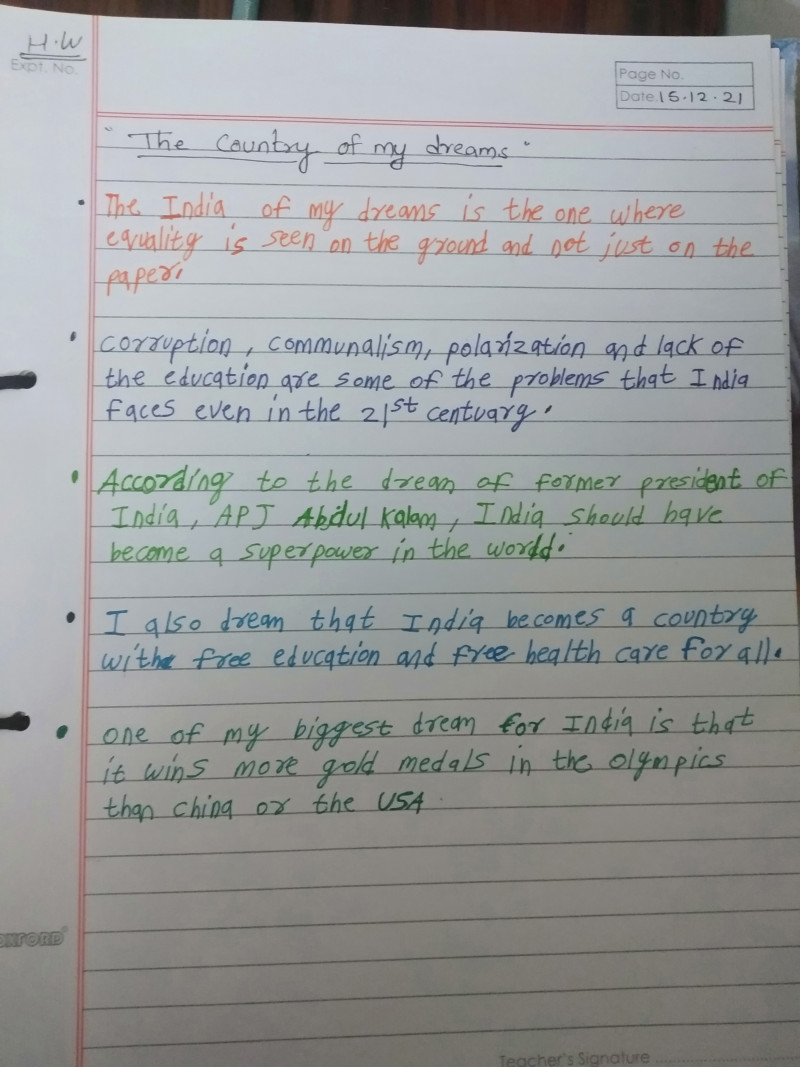 H.W
Expt. No.
Page No.
Date 15.12.21
"The Country of my dreams"
• The India of my dreams is the one where
equality is seen on the ground and not just on the
paper.
• corruption, communalism, polarization and lack of
the education are some of the problems that India
faces even in the 21st centuary.
• According to the dream of former president of
India, APJ Abdul Kalam, India should have
become a superpower in the world.
• I also dream that India becomes a country
with free education and free health care for all.
• one of my biggest dream for India is that
it wins more gold medals in the olympics
than china or the USA.
OXFORD
Teacher's Signature